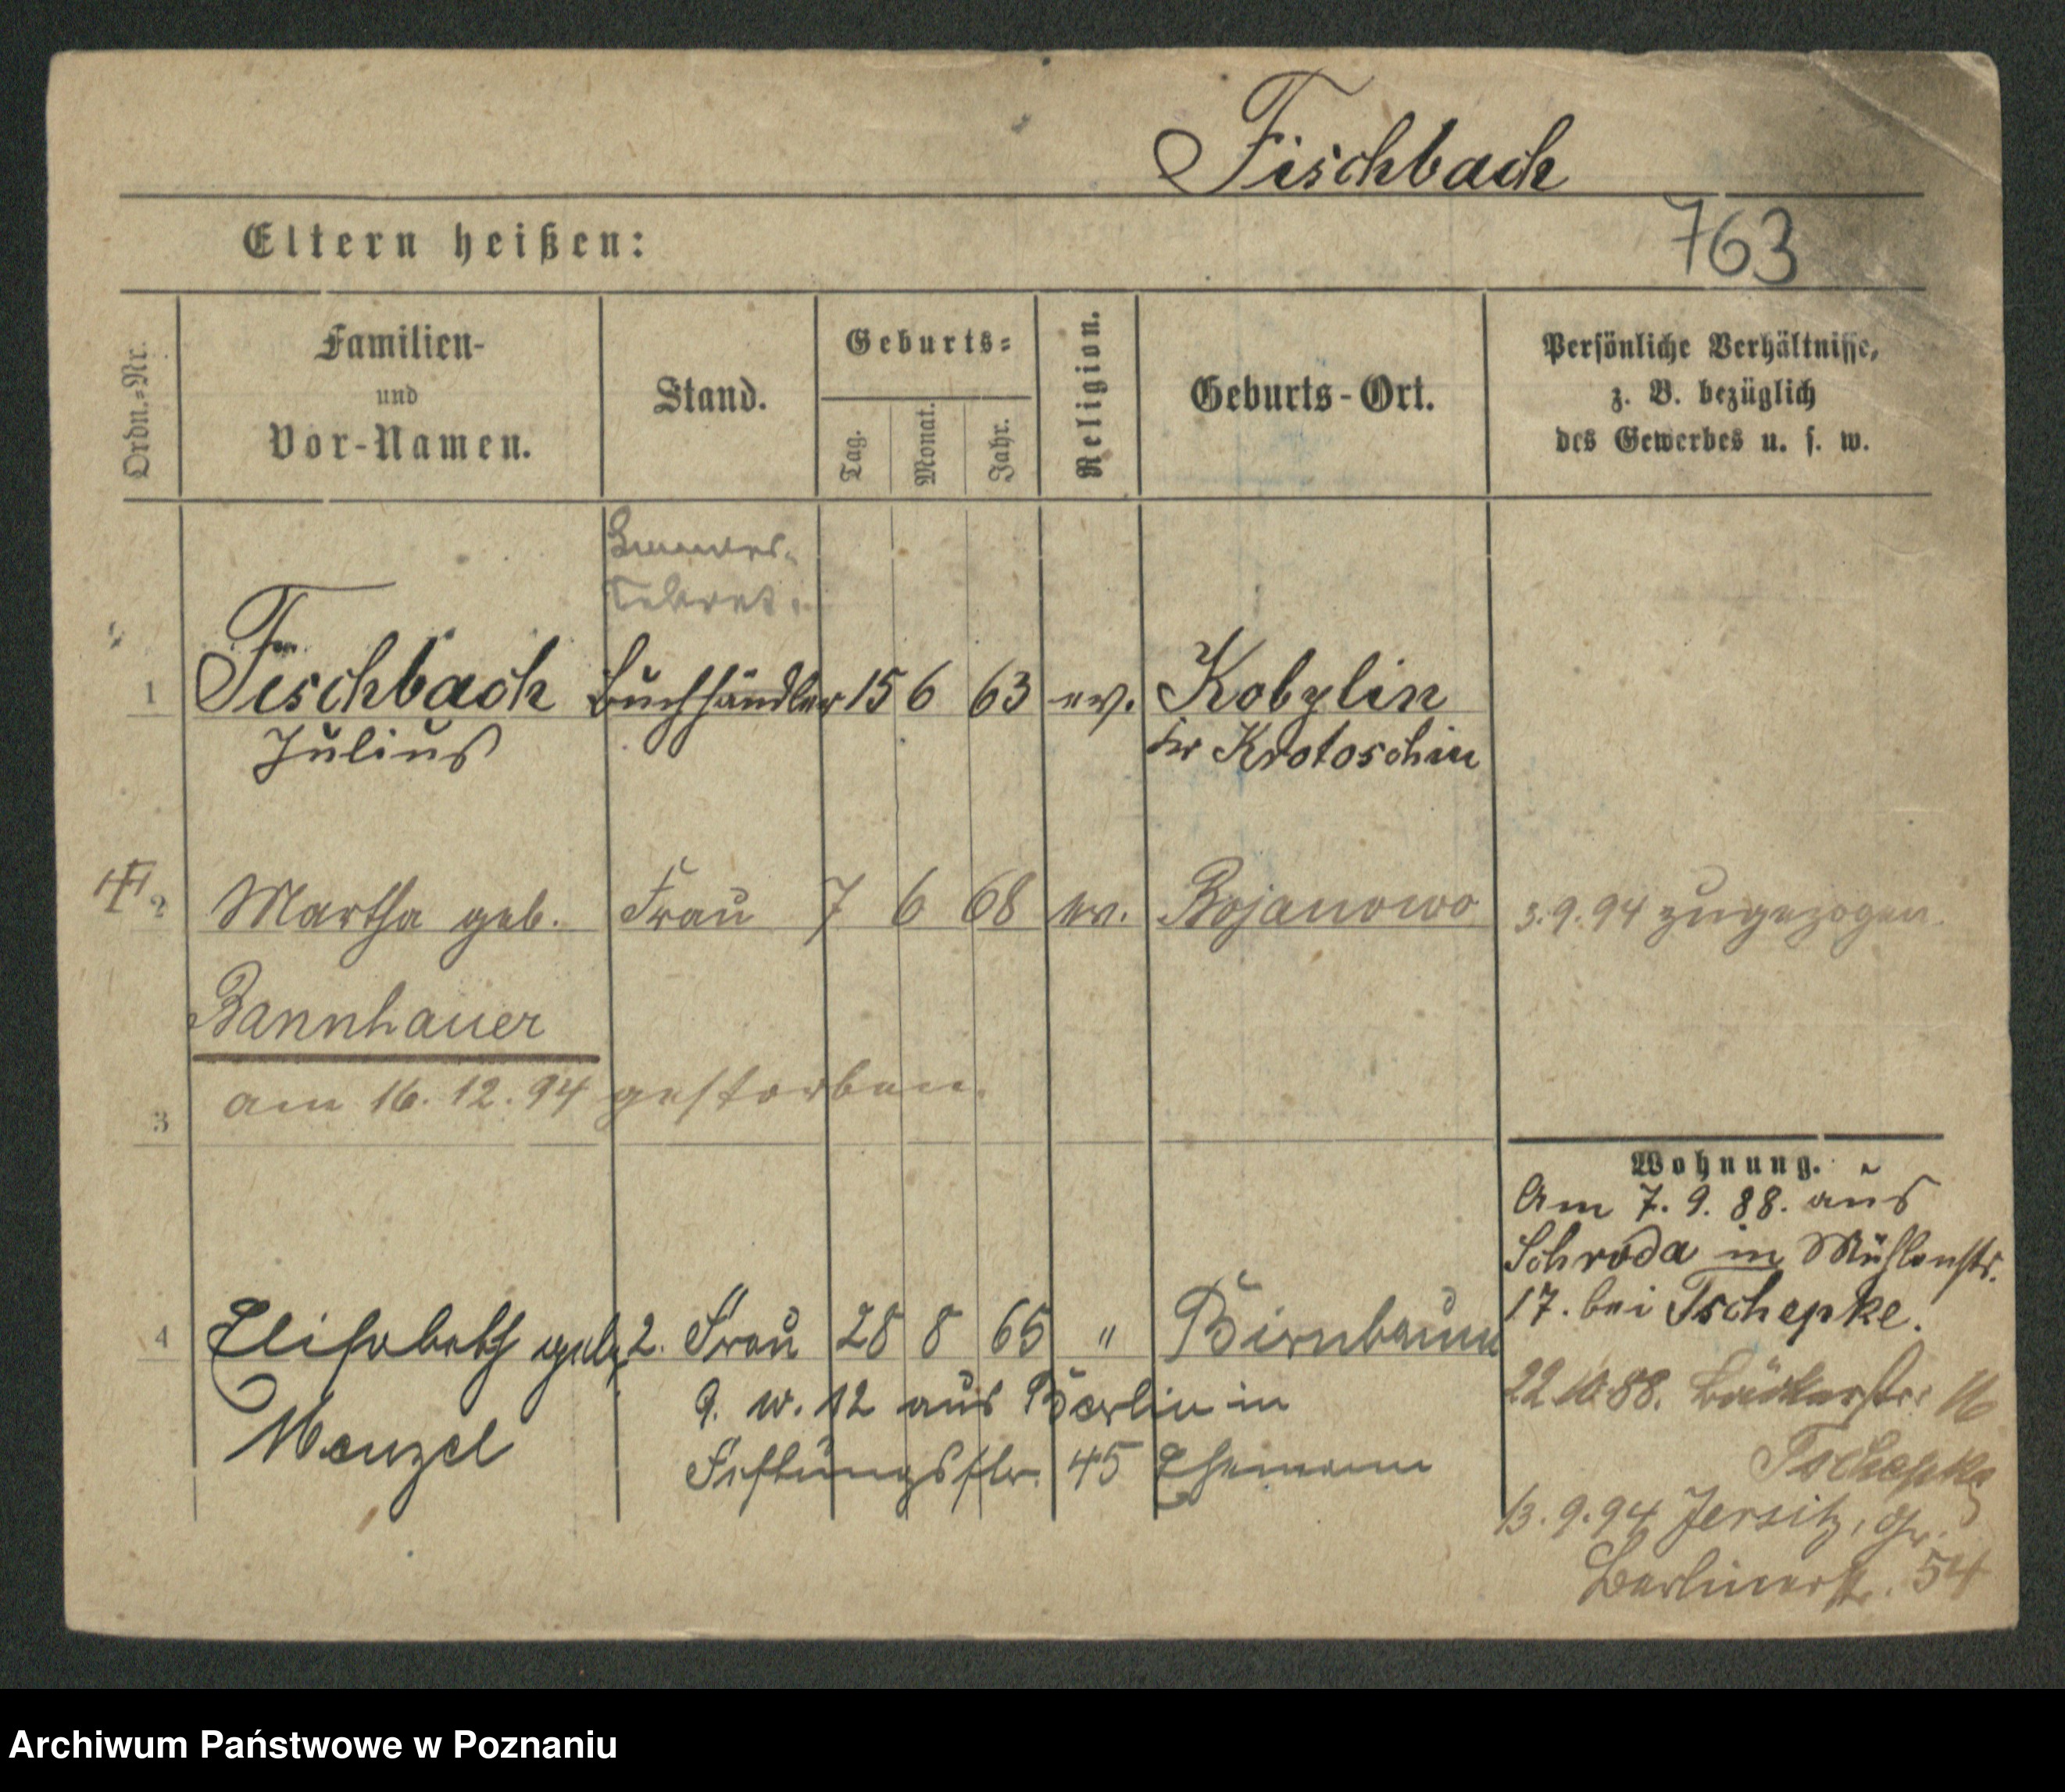 Fischbach
763
Eltern heißen:
Ordn.=Nr.
Familien-
und
Vor-Namen.
Stand.
Geburts=
Tag.
Monat.
Jahr.
Religion.
Geburts-Ort.
Persönliche Verhältnisse,
z. B. bezüglich
des Gewerbes u. s. w.
1 Fischbach Buchhändler 15 6 63 ev. Kobylin
Julius Kr Krotoschin
2 Martha geb. Frau 7 6 68 ev. Bojanowo 3.9.94 zugezogen.
Bannhauer
3 am 16.12.94 gestorben.
Wohnung.
Am 7.9.88. aus
Schroda in Mühlenstr.
17. bei Tschepke.
4 Elisabeth geb. 2. Frau 28 8 65 " Birnbaum
9. 12 aus Berlin in
Menzel
45 Ehemann
22.10.88. Bäckerstr. 16
Tschepke
13.9.94 Jersitz, Gr.
Berlinerstr. 54
Archiwum Państwowe w Poznaniu